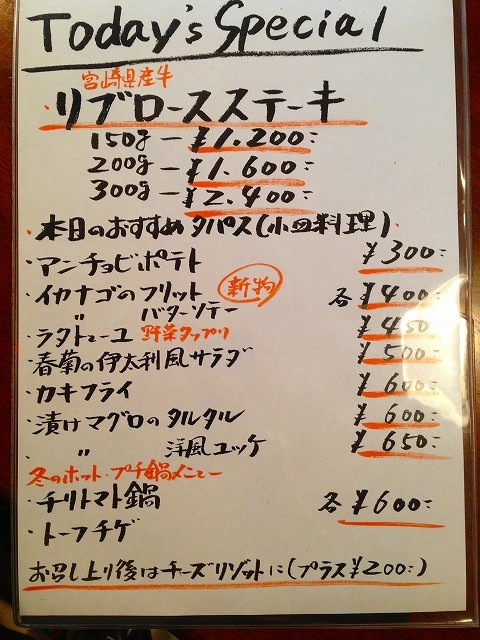 Today's Special
宮崎県産牛
・リブロースステーキ
150g ー ¥1.200:
200g ー ¥1.600:
300g ー ¥2.400:
・本日のおすすめタパス(小皿料理)・
・アンチョビポテト ¥300:
・イカナゴのフリット 新物 各 ¥400:
〃 バターソテー
・ラタトューユ 野菜タップリ ¥450
・春菊の伊太利風サラダ ¥500:
・カキフライ ¥600:
・漬けマグロのタルタル ¥600:
・〃 洋風ユッケ ¥650:
冬のホット・プチ鍋メニュー
・チリトマト鍋 各 ¥600:
・トーフチゲ
お召し上り後はチーズリゾットに(プラス¥200:)